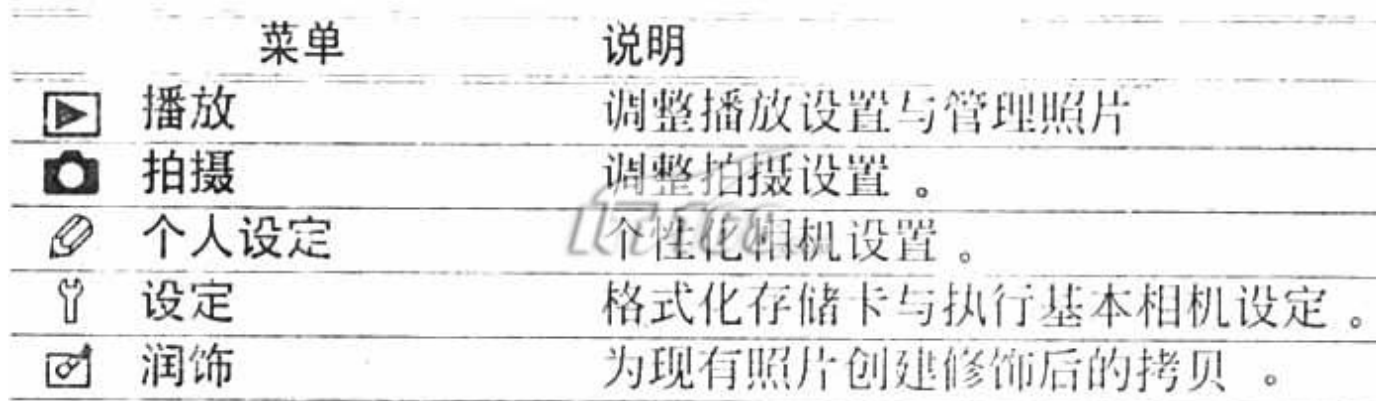 菜单 说明
播放 调整播放设置与管理照片
拍摄 调整拍摄设置 。
个人设定 个性化相机设置 。
设定 格式化存储卡与执行基本相机设定 。
润饰 为现有照片创建修饰后的拷贝 。